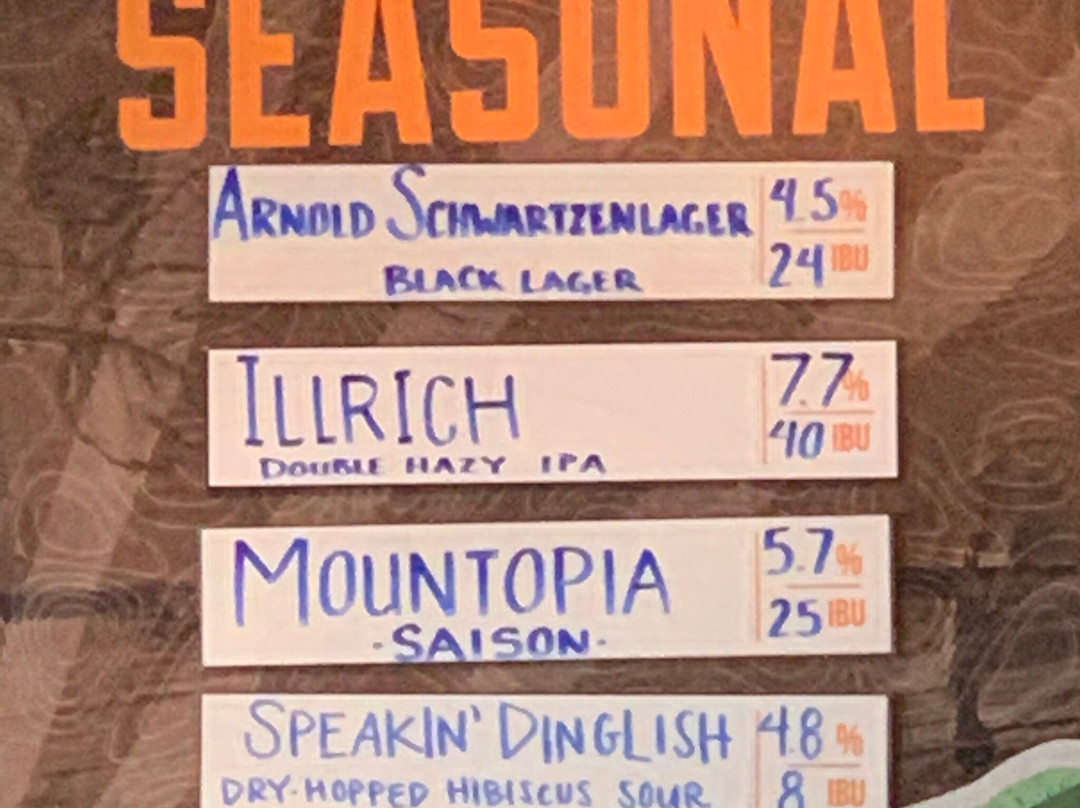 SEASONAL
ARNOLD SCHWARTZENLAGER 4.5%
BLACK LAGER 24 IBU
ILLRICH 7.7%
DOUBLE HAZY IPA 40 IBU
MOUNTOPIA 5.7%
·SAISON· 25 IBU
SPEAKIN' DINGLISH 4.8%
DRY-HOPPED HIBISCUS SOUR 8 IBU